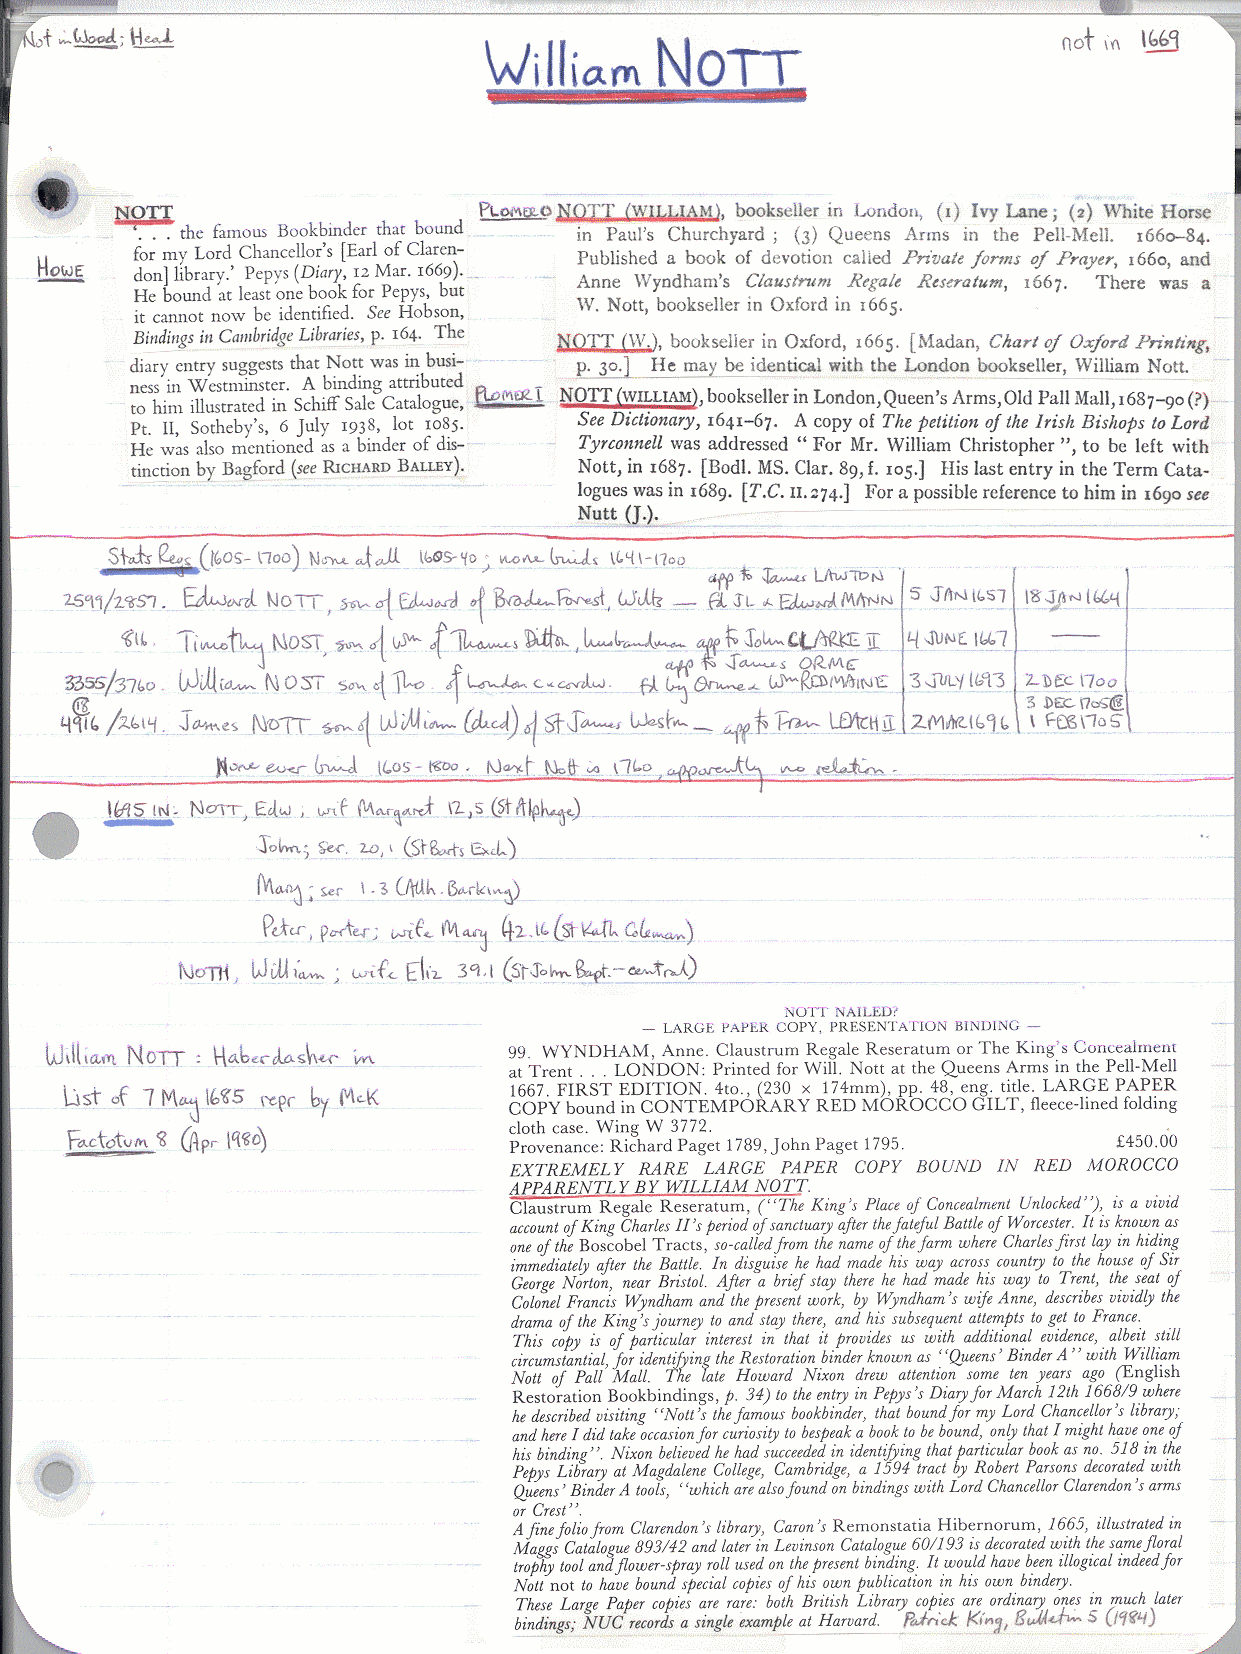 Not in Wood; Head
not in 1669
William NOTT
HOWE
NOTT
‘. . . the famous Bookbinder that bound
for my Lord Chancellor’s [Earl of Claren-
don] library.’ Pepys (Diary, 12 Mar. 1669).
He bound at least one book for Pepys, but
it cannot now be identified. See Hobson,
Bindings in Cambridge Libraries, p. 164. The
diary entry suggests that Nott was in busi-
ness in Westminster. A binding attributed
to him illustrated in Schiff Sale Catalogue,
Pt. II, Sotheby’s, 6 July 1938, lot 1085.
He was also mentioned as a binder of dis-
tinction by Bagford (see RICHARD BALLEY).
PLOMER O NOTT (WILLIAM), bookseller in London, (1) Ivy Lane; (2) White Horse
in Paul’s Churchyard; (3) Queens Arms in the Pell-Mell. 1660–84.
Published a book of devotion called Private forms of Prayer, 1660, and
Anne Wyndham’s Claustrum Regale Reseratum, 1667. There was a
W. Nott, bookseller in Oxford in 1665.
NOTT (W.), bookseller in Oxford, 1665. [Madan, Chart of Oxford Printing,
p. 30.] He may be identical with the London bookseller, William Nott.
PLOMER I NOTT (WILLIAM), bookseller in London, Queen’s Arms, Old Pall Mall, 1687–90 (?)
See Dictionary, 1641–67. A copy of The petition of the Irish Bishops to Lord
Tyrconnell was addressed “ For Mr. William Christopher ”, to be left with
Nott, in 1687. [Bodl. MS. Clar. 89, f. 105.] His last entry in the Term Cata-
logues was in 1689. [T.C. II.274.] For a possible reference to him in 1690 see
Nutt (J.).
Stats Regs (1605-1700) None at all 1605-40; none binds 1641-1700
app to James LAWTON
2599/2857. Edward NOTT, son of Edward of Braden Forest, Wilts — fd JL & Edward MANN 5 JAN 1657 18 JAN 1664
816. Timothy NOST, son of Wm of Thames Ditton, husbandman app to John CLARKE II 4 JUNE 1667 —
app to James ORME
3355/3760. William NOST son of Tho. of London cxcordw. fd by Orme & Wm REDMAINE 3 JULY 1693 2 DEC 1700
18 3 DEC 1705 18
4916/2614. James NOTT son of William (decd) of St James Westm — app to Fran LEACH II 2 MAR 1696 1 FEB 1705
None ever bind 1605-1800. Next Nott is 1760, apparently no relation.
1695 IN: NOTT, Edw; wif Margaret 12,5 (St Alphage)
John; ser. 20,1 (St Barts Exch)
Mary; ser 1.3 (Allh. Barking)
Peter, porter; wife Mary 42.16 (St Kath Coleman)
NOTH, William; wife Eliz 39.1 (St John Bapt. – central)
William NOTT : Haberdasher in
List of 7 May 1685 repr by McK
Factotum 8 (Apr 1980)
NOTT NAILED?
— LARGE PAPER COPY, PRESENTATION BINDING —
99. WYNDHAM, Anne. Claustrum Regale Reseratum or The King’s Concealment
at Trent . . . LONDON: Printed for Will. Nott at the Queens Arms in the Pell-Mell
1667. FIRST EDITION. 4to., (230 × 174mm), pp. 48, eng. title. LARGE PAPER
COPY bound in CONTEMPORARY RED MOROCCO GILT, fleece-lined folding
cloth case. Wing W 3772.
Provenance: Richard Paget 1789, John Paget 1795. £450.00
EXTREMELY RARE LARGE PAPER COPY BOUND IN RED MOROCCO
APPARENTLY BY WILLIAM NOTT.
Claustrum Regale Reseratum, (“The King’s Place of Concealment Unlocked”), is a vivid
account of King Charles II’s period of sanctuary after the fateful Battle of Worcester. It is known as
one of the Boscobel Tracts, so-called from the name of the farm where Charles first lay in hiding
immediately after the Battle. In disguise he had made his way across country to the house of Sir
George Norton, near Bristol. After a brief stay there he had made his way to Trent, the seat of
Colonel Francis Wyndham and the present work, by Wyndham’s wife Anne, describes vividly the
drama of the King’s journey to and stay there, and his subsequent attempts to get to France.
This copy is of particular interest in that it provides us with additional evidence, albeit still
circumstantial, for identifying the Restoration binder known as “Queens’ Binder A” with William
Nott of Pall Mall. The late Howard Nixon drew attention some ten years ago (English
Restoration Bookbindings, p. 34) to the entry in Pepys’s Diary for March 12th 1668/9 where
he described visiting “Nott’s the famous bookbinder, that bound for my Lord Chancellor’s library;
and here I did take occasion for curiosity to bespeak a book to be bound, only that I might have one of
his binding”. Nixon believed he had succeeded in identifying that particular book as no. 518 in the
Pepys Library at Magdalene College, Cambridge, a 1594 tract by Robert Parsons decorated with
Queens’ Binder A tools, “which are also found on bindings with Lord Chancellor Clarendon’s arms
or Crest”.
A fine folio from Clarendon’s library, Caron’s Remonstatia Hibernorum, 1665, illustrated in
Maggs Catalogue 893/42 and later in Levinson Catalogue 60/193 is decorated with the same floral
trophy tool and flower-spray roll used on the present binding. It would have been illogical indeed for
Nott not to have bound special copies of his own publication in his own bindery.
These Large Paper copies are rare: both British Library copies are ordinary ones in much later
bindings; NUC records a single example at Harvard. Patrick King, Bulletin 5 (1984)